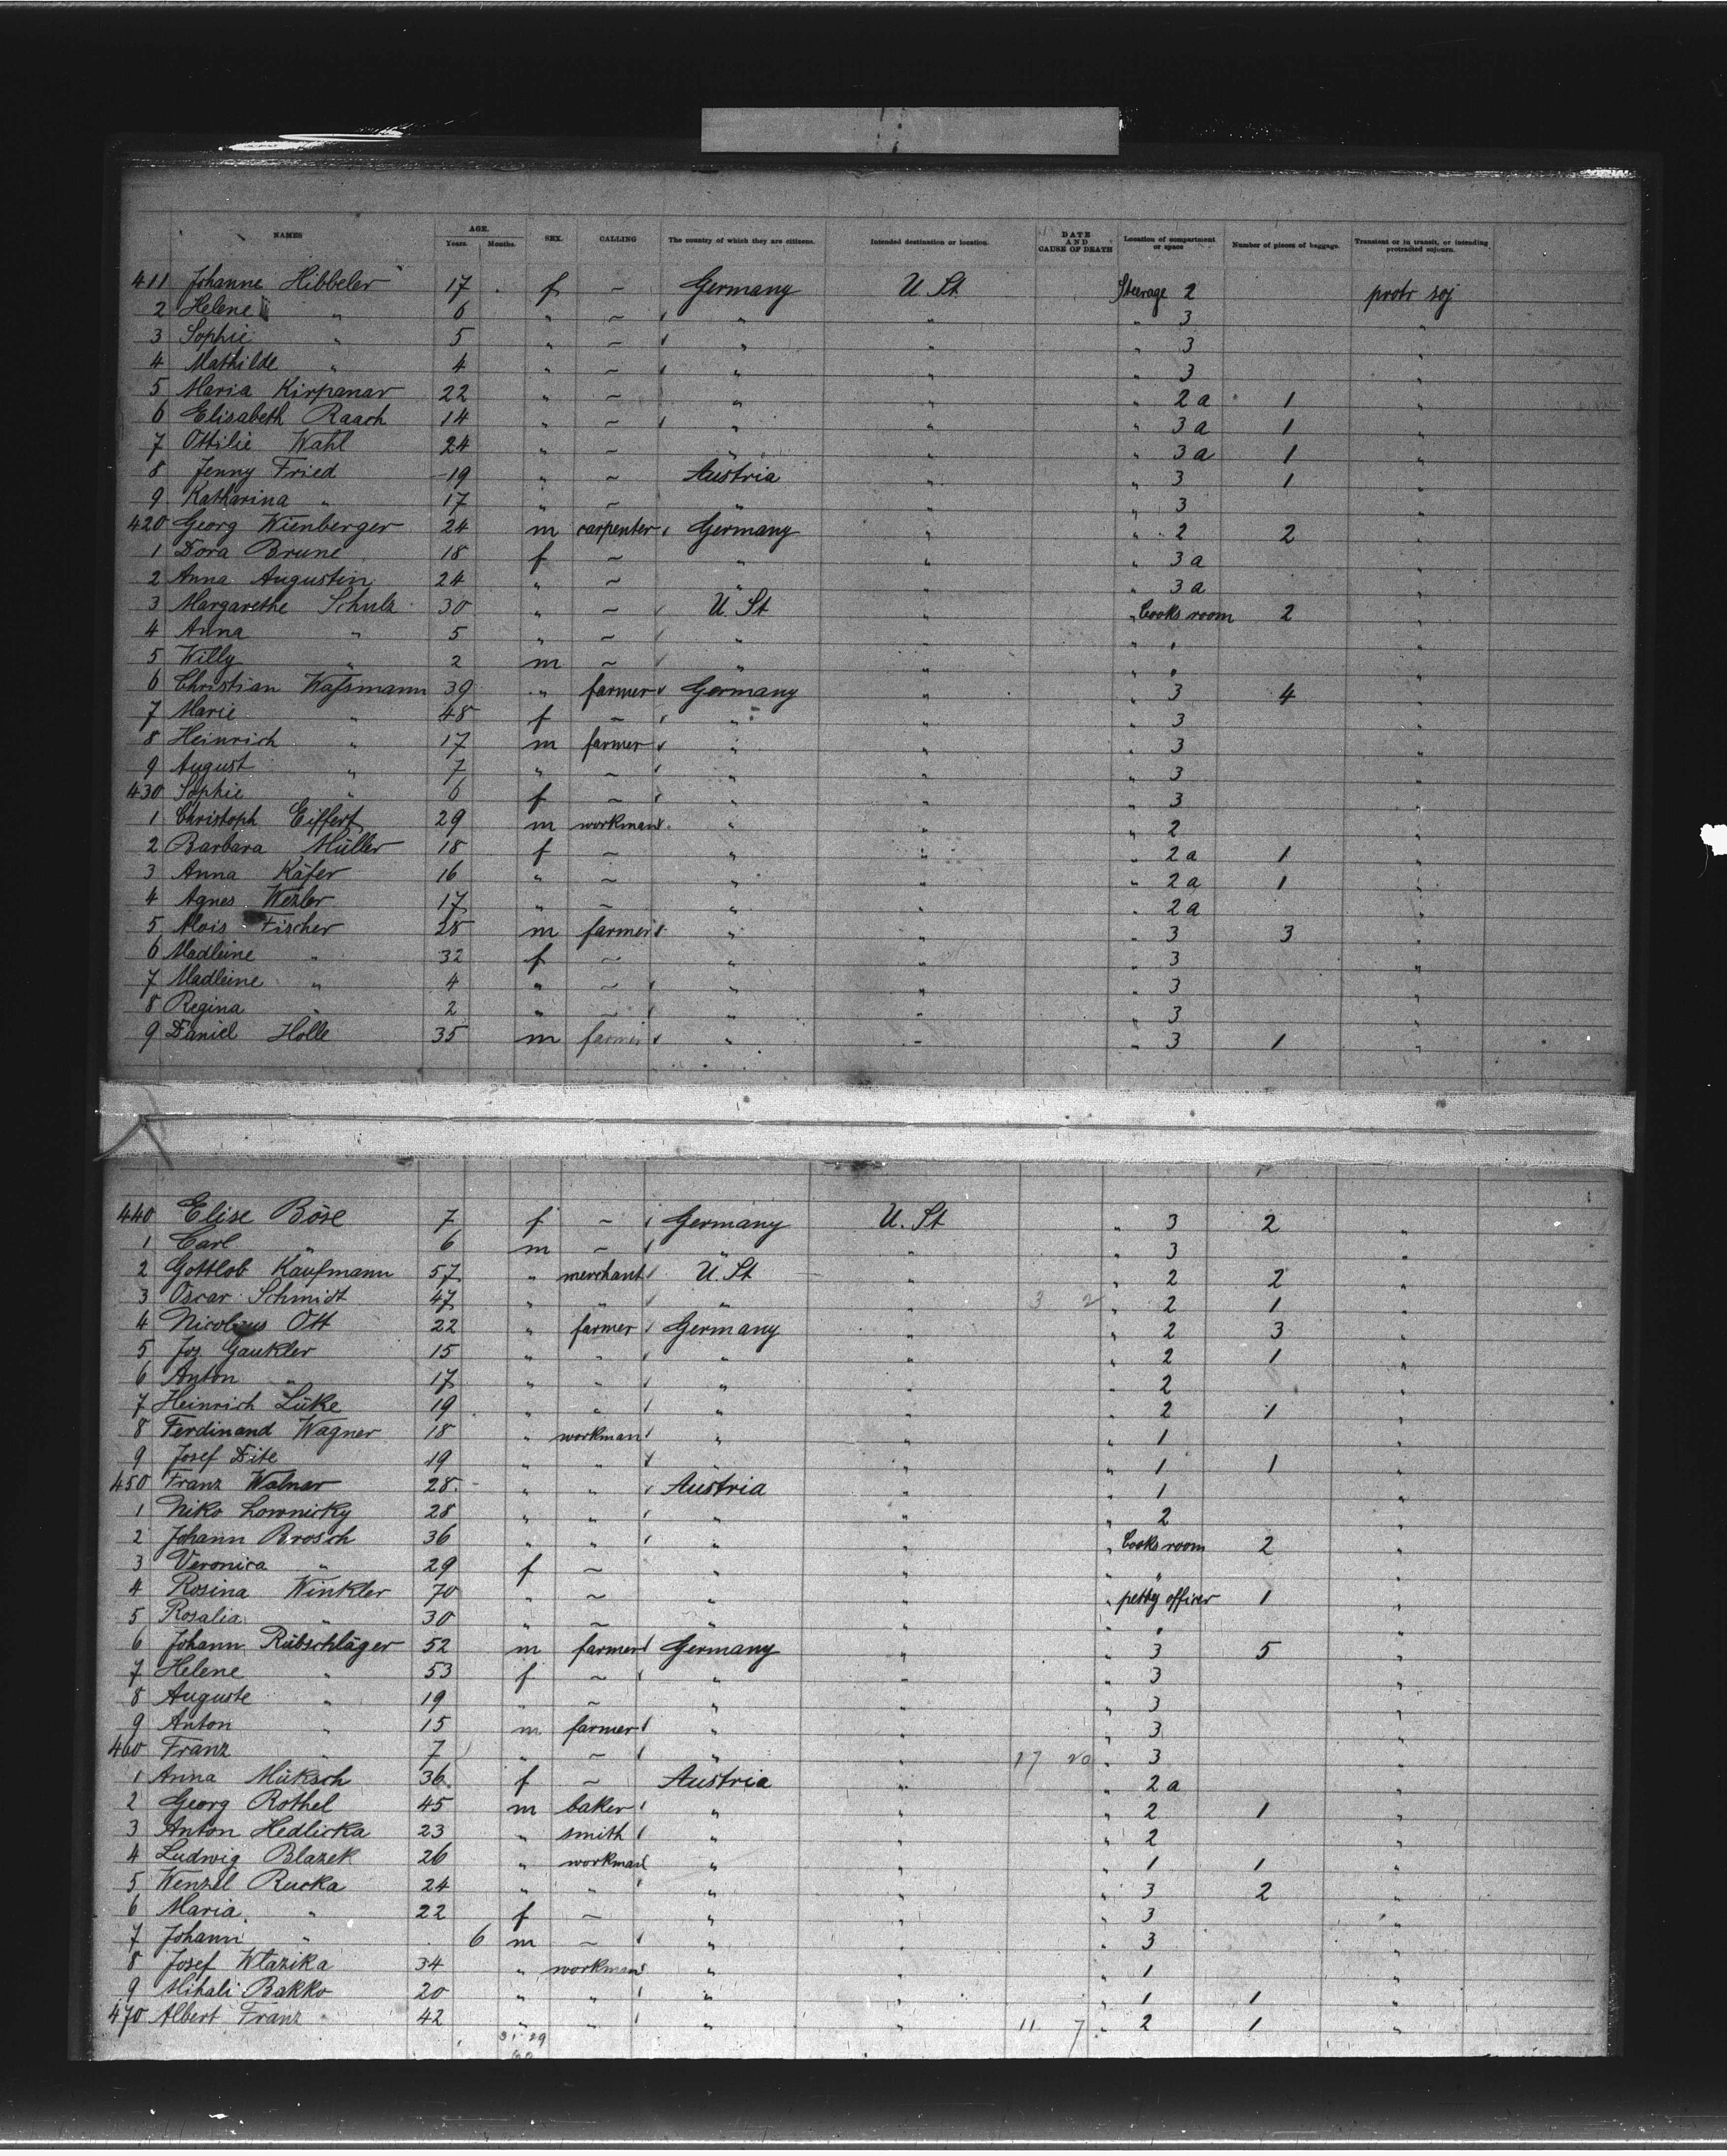 NAMES AGE. SEX. CALLING The country of which they are citizens. Intended destination or location. DATE AND CAUSE OF DEATH Location of compartment or space Number of pieces of baggage. Transient or in transit, or intending protracted sojourn.
Years. Months.
411 Johanne Hibbeler 17 f ~ Germany U St Steerage 2 protr soj
2 Helene " 6 " ~ " " " 3 "
3 Sophie " 5 " ~ " " " 3 "
4 Mathilde " 4 " ~ " " " 3 "
5 Maria Kirpanar 22 " ~ " " " 2a 1 "
6 Elisabeth Raach 14 " ~ " " " 3a 1 "
7 Ottilie Wahl 24 " ~ " " " 3a 1 "
8 Jenny Fried 19 " ~ Austria " " 3 1 "
9 Katharina " 17 " ~ " " " 3 "
420 Georg Wienberger 24 m carpenter Germany " " 2 2 "
1 Dora Brune 18 f ~ " " " 3a "
2 Anna Augustin 24 " ~ " " " 3a "
3 Margarethe Schulz 30 " ~ U. St " " Cooks room 2 "
4 Anna " 5 " ~ " " " " "
5 Willy " 2 m ~ " " " " "
6 Christian Waßmann 39 " farmer Germany " " 3 4 "
7 Marie " 48 f ~ " " " 3 "
8 Heinrich " 17 m farmer " " " 3 "
9 August " 7 " ~ " " " 3 "
430 Sophie " 6 f ~ " " " 3 "
1 Christoph Eiffert 29 m workman " " " 2 "
2 Barbara Müller 18 f ~ " " " 2a 1 "
3 Anna Käfer 16 " ~ " " " 2a 1 "
4 Agnes Wezler 17 " ~ " " " 2a "
5 Alois Fischer 28 m farmer " " " 3 3 "
6 Madleine " 32 f ~ " " " 3 "
7 Madleine " 4 " ~ " " " 3 "
8 Regina " 2 " ~ " " " 3 "
9 Daniel Holle 35 m farmer " " " 3 1 "
440 Elise Böse 7 f ~ Germany U. St " 3 2 "
1 Carl " 6 m ~ " " " 3 "
2 Gottlob Kaufmann 57 " merchant U. St " " 2 2 "
3 Oscar Schmidt 47 " " " " 3 2 " 2 1 "
4 Nicolaus Ott 22 " farmer Germany " " 2 3 "
5 Jos Gaukler 15 " " " " " 2 1 "
6 Anton " 17 " " " " " 2 "
7 Heinrich Lüke 19 " " " " " 2 1 "
8 Ferdinand Wagner 18 " workman " " " 1 "
9 Josef Dite 19 " " " " " 1 1 "
450 Franz Walnar 28 " " Austria " " 1 "
1 Niko Lownicky 28 " " " " " 2 "
2 Johann Brosch 36 " " " " " Cooks room 2 "
3 Veronica " 29 f ~ " " " " "
4 Rosina Winkler 70 " ~ " " " petty officer 1 "
5 Rosalia " 30 " ~ " " " " "
6 Johann Rübschläger 52 m farmer Germany " " 3 5 "
7 Helene " 53 f ~ " " " 3 "
8 Auguste " 19 " ~ " " " 3 "
9 Anton " 15 m farmer " " " 3 "
460 Franz " 7 " ~ " " 17 20 " 3 "
1 Anna Müksch 36 f ~ Austria " " 2a "
2 Georg Rothel 45 m baker " " " 2 1 "
3 Anton Hedlicka 23 " smith " " " 2 "
4 Ludwig Blazek 26 " workman " " " 1 1 "
5 Wenzel Rucka 24 " " " " " 3 2 "
6 Maria " 22 f ~ " " " 3 "
7 Johann " 6 m ~ " " " 3 "
8 Josef Wlazika 34 " workman " " " 1 "
9 Mihali Bakko 20 " " " " " 1 1 "
470 Albert Franz 42 " " " " 11 7 " 2 1 "
31 29
60